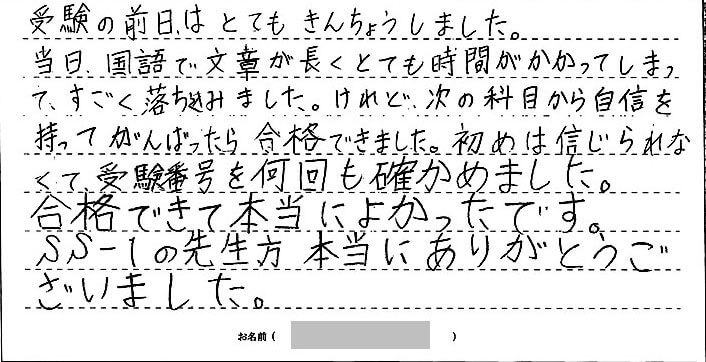 受験の前日はとてもきんちょうしました。
当日、国語で文章が長くとても時間がかかってしまっ
て、すごく落ち込みました。けれど、次の科目から自信を
持ってがんばったら合格できました。初めは信じられな
くて、受験番号を何回も確かめました。
合格できて本当によかったです。
SS-1の先生方 本当にありがとうご
ざいました。
お名前( )